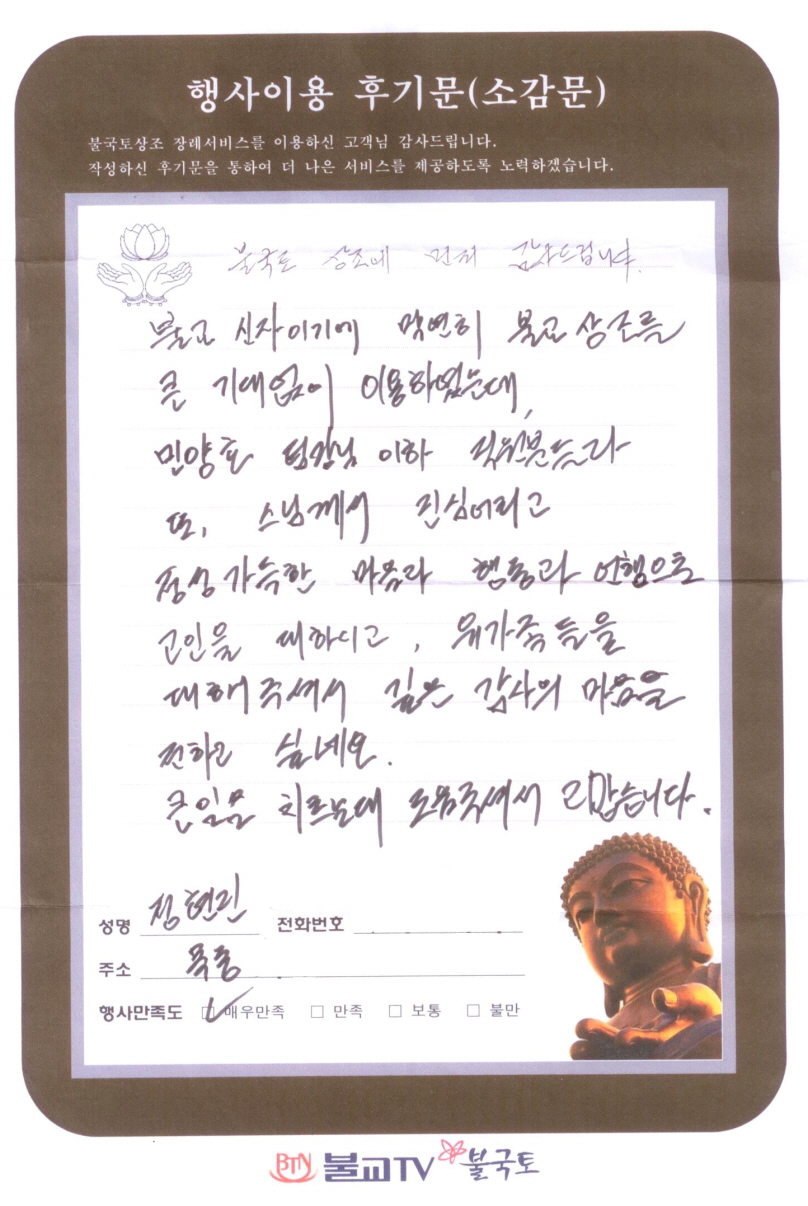 행사이용 후기문(소감문)
불국토상조 장례서비스를 이용하신 고객님 감사드립니다.
작성하신 후기문을 통하여 더 나은 서비스를 제공하도록 노력하겠습니다.
불국토 상조에 먼저 감사드립니다.
불교 신자이기에 막연히 불교 상조를
큰 기대없이 이용하였는데,
민양호 팀장님 이하 직원분들과
또, 스님께서 진심어리고
정성 가득한 마음과 행동과 언행으로
고인을 대하시고, 유가족들을
대해주셔서 깊은 감사의 마음을
전하고 싶네요.
큰일을 치르는데 도움주셔서 고맙습니다.
성명 정현진 전화번호
주소
행사만족도 매우만족 만족 보통 불만
BTN 불교TV 불국토